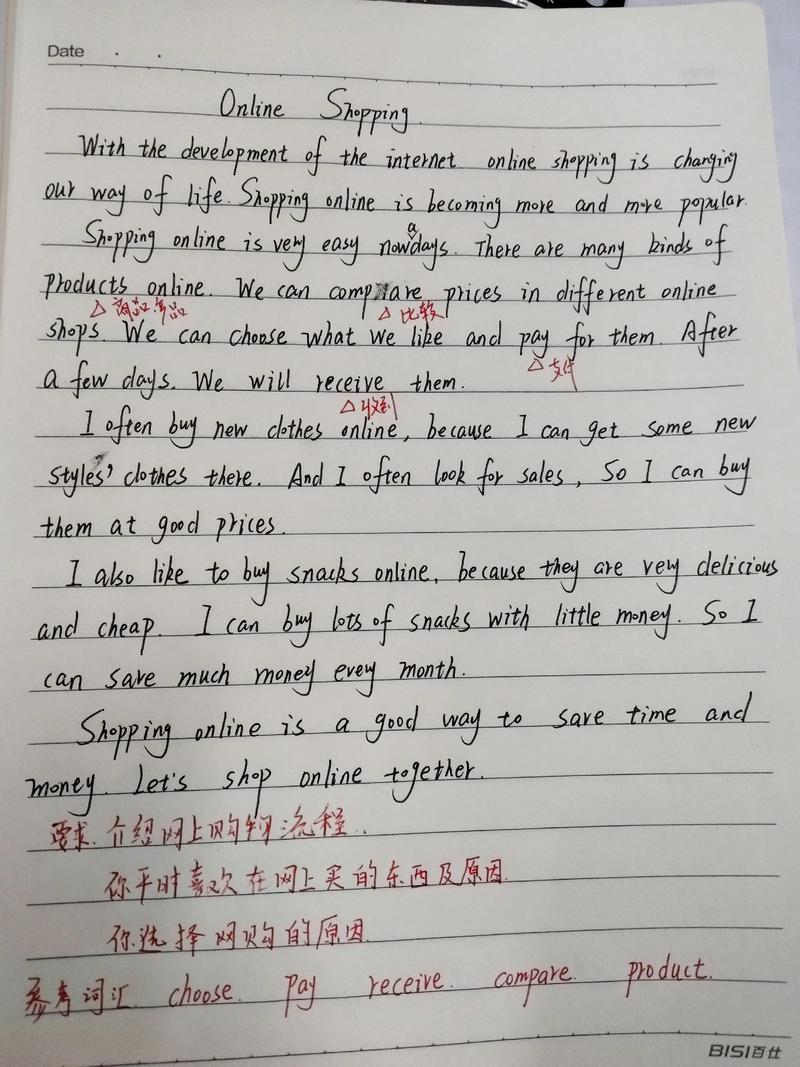 Date
Online Shopping.
With the development of the internet online shopping is changing
our way of life. Shopping online is becoming more and more popular.
Shopping online is very easy nowadays. There are many kinds of
products online. We can compare prices in different online
△ 商品产品 △ 比较
shops. We can choose what we like and pay for them. After
△ 支付
a few days. We will receive them.
△ 收到
I often buy new clothes online, because I can get some new
styles' clothes there. And I often look for sales, So I can buy
them at good prices.
I also like to buy snacks online, because they are very delicious
and cheap. I can buy lots of snacks with little money. So I
can save much money every month.
Shopping online is a good way to save time and
money. Let's shop online together.
要求. 介绍网上购物流程.
你平时喜欢在网上买的东西及原因.
你选择网购的原因.
参考词汇. choose. pay receive. compare. product.
BISI百仕